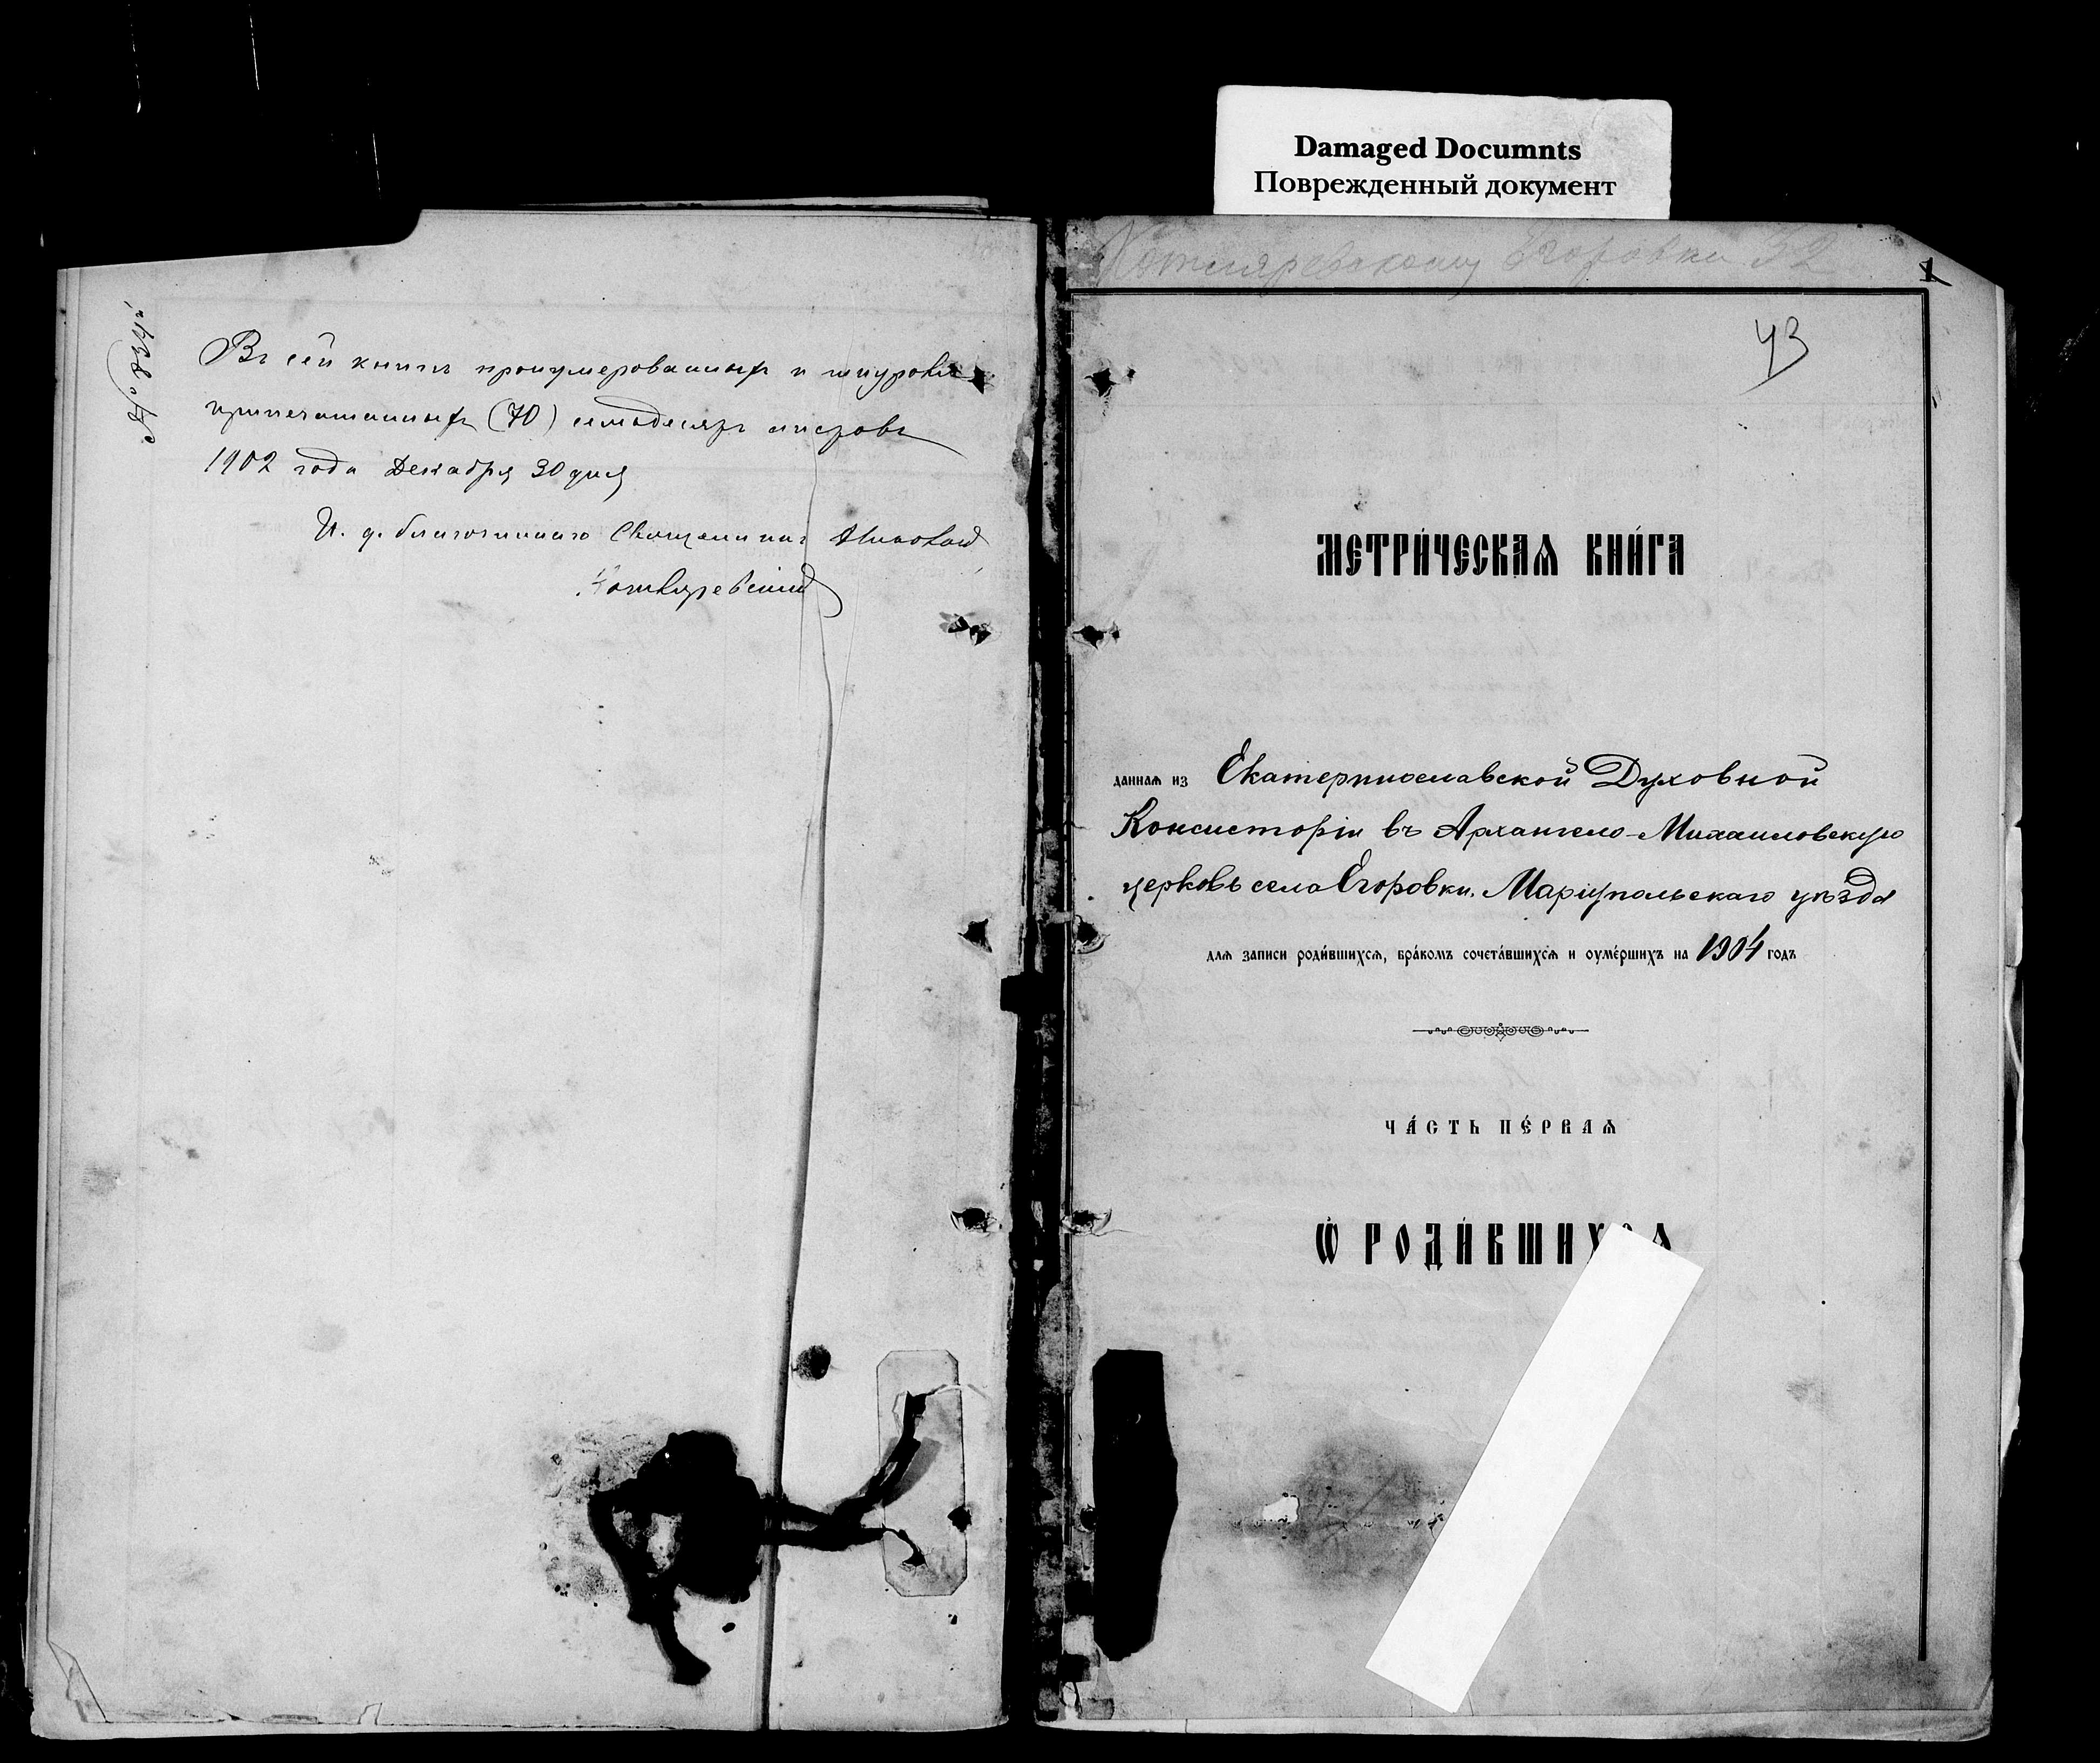 Damaged Documnts
Поврежденный документ
Въ сей книгѣ пронумерованныхъ и шнуромъ
припечатанныхъ (70) семьдесятъ листовъ
1902 года Декабря 30 дня
И. д. благочиннаго Священникъ
Котляревскій
Котляревскому Егоровки 52
1
43
МЕТРИ́ЧЕСКАѦ КНИ́ГА
даннаѧ из Екатеринославской Духовной
Консисторіи въ Архангело-Михаиловскую
церковь села Егоровки, Маріупольскаго уѣзда
длѧ записи роди́вшихсѧ, бра́комъ сочета́вшихсѧ и оуме́ршихъ на 1904 годъ
ЧА́СТЬ ПЕ́РВАѦ
Ѡ РОДИ́ВШИХСѦ